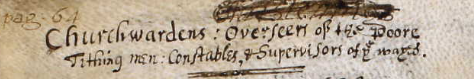 pag. 64
Churchwardens: Overseers of the Poore
Tithing men: Constables, & Supervisors of yͤ wayes.